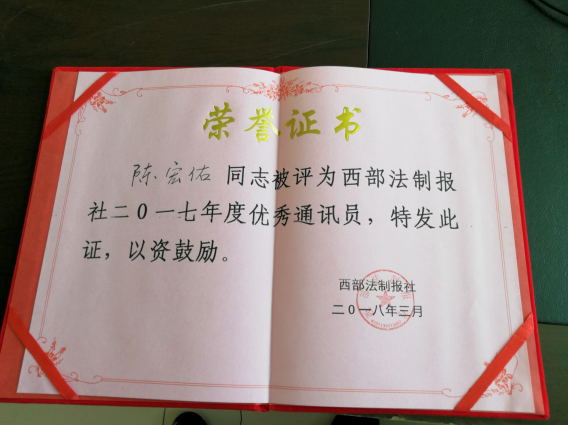 荣誉证书
陈宏佑 同志被评为西部法制报
社二0一七年度优秀通讯员，特发此
证，以资鼓励。
西部法制报社
二0一八年三月